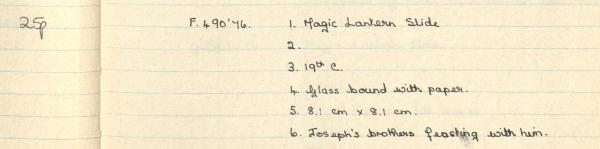 25p F.490'76. 1. Magic Lantern Slide
2.
3. 19th C.
4. Glass bound with paper.
5. 8.1 cm x 8.1 cm.
6. Joseph's brothers feasting with him.